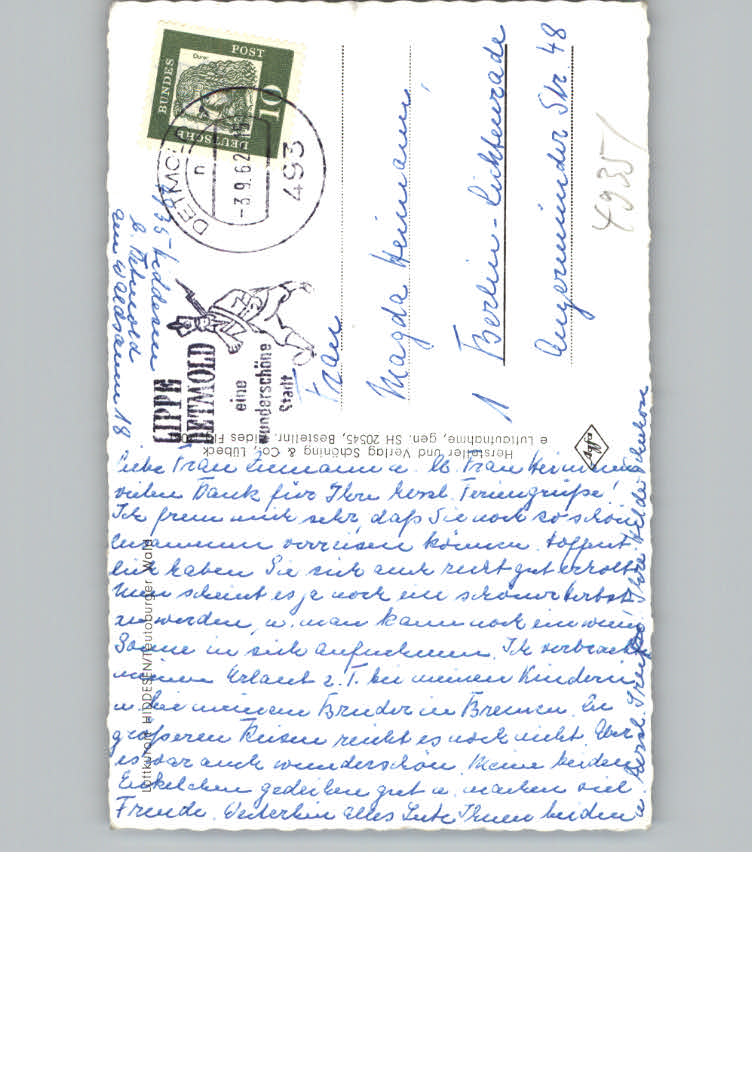 BUNDES
POST
DEUTSCHE
10
DETMOLD
-3.9.62
493
LIPPE
DETMOLD
eine
wunderschöne
Stadt
4935-Hiddesen
b. Detmold
am Waldsaum 18
Frau
Magda Heimann
1 Berlin-Lichtenrade
Angermünder Str 48
4935/
Hersteller und Verlag Schöning & Co., Lübeck
Luftaufnahme, gen. SH 20545, Bestellnr.
Luftkurort HIDDESEN/Teutoburger Wald
Liebe Frau u. lb. Frau Heimann
vielen Dank für Ihre herzl. Feriengrüße!
Ich freue mich sehr, daß Sie noch so schön
zusammen verreisen können. Hoffent
lich haben Sie sich auch recht gut erholt.
Nun scheint es ja noch ein schöner Herbst
zu werden, u. man kann noch ein wenig
Sonne in sich aufnehmen. Ich verbrachte
meinen Urlaub z. T. bei meinen Kindern
u. bei meinem Bruder in Bremen. Zu
größeren Reisen reicht es noch nicht. Aber
es war auch wunderschön. Meine beiden
Enkelchen gedeihen gut u. machen viel
Freude. Weiterhin alles Gute Ihnen beiden
u. herzl. Grüße! Ihre Hilde